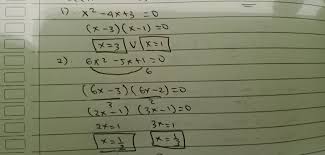 1) x² - 4x + 3 = 0
(x - 3)(x - 1) = 0
x = 3 V x = 1
2) 6x² - 5x + 1 = 0
6
(6x - 3)(6x - 2) = 0
3 2
(2x - 1) (3x - 1) = 0
2x = 1 3x = 1
x = 1/2 x = 1/3